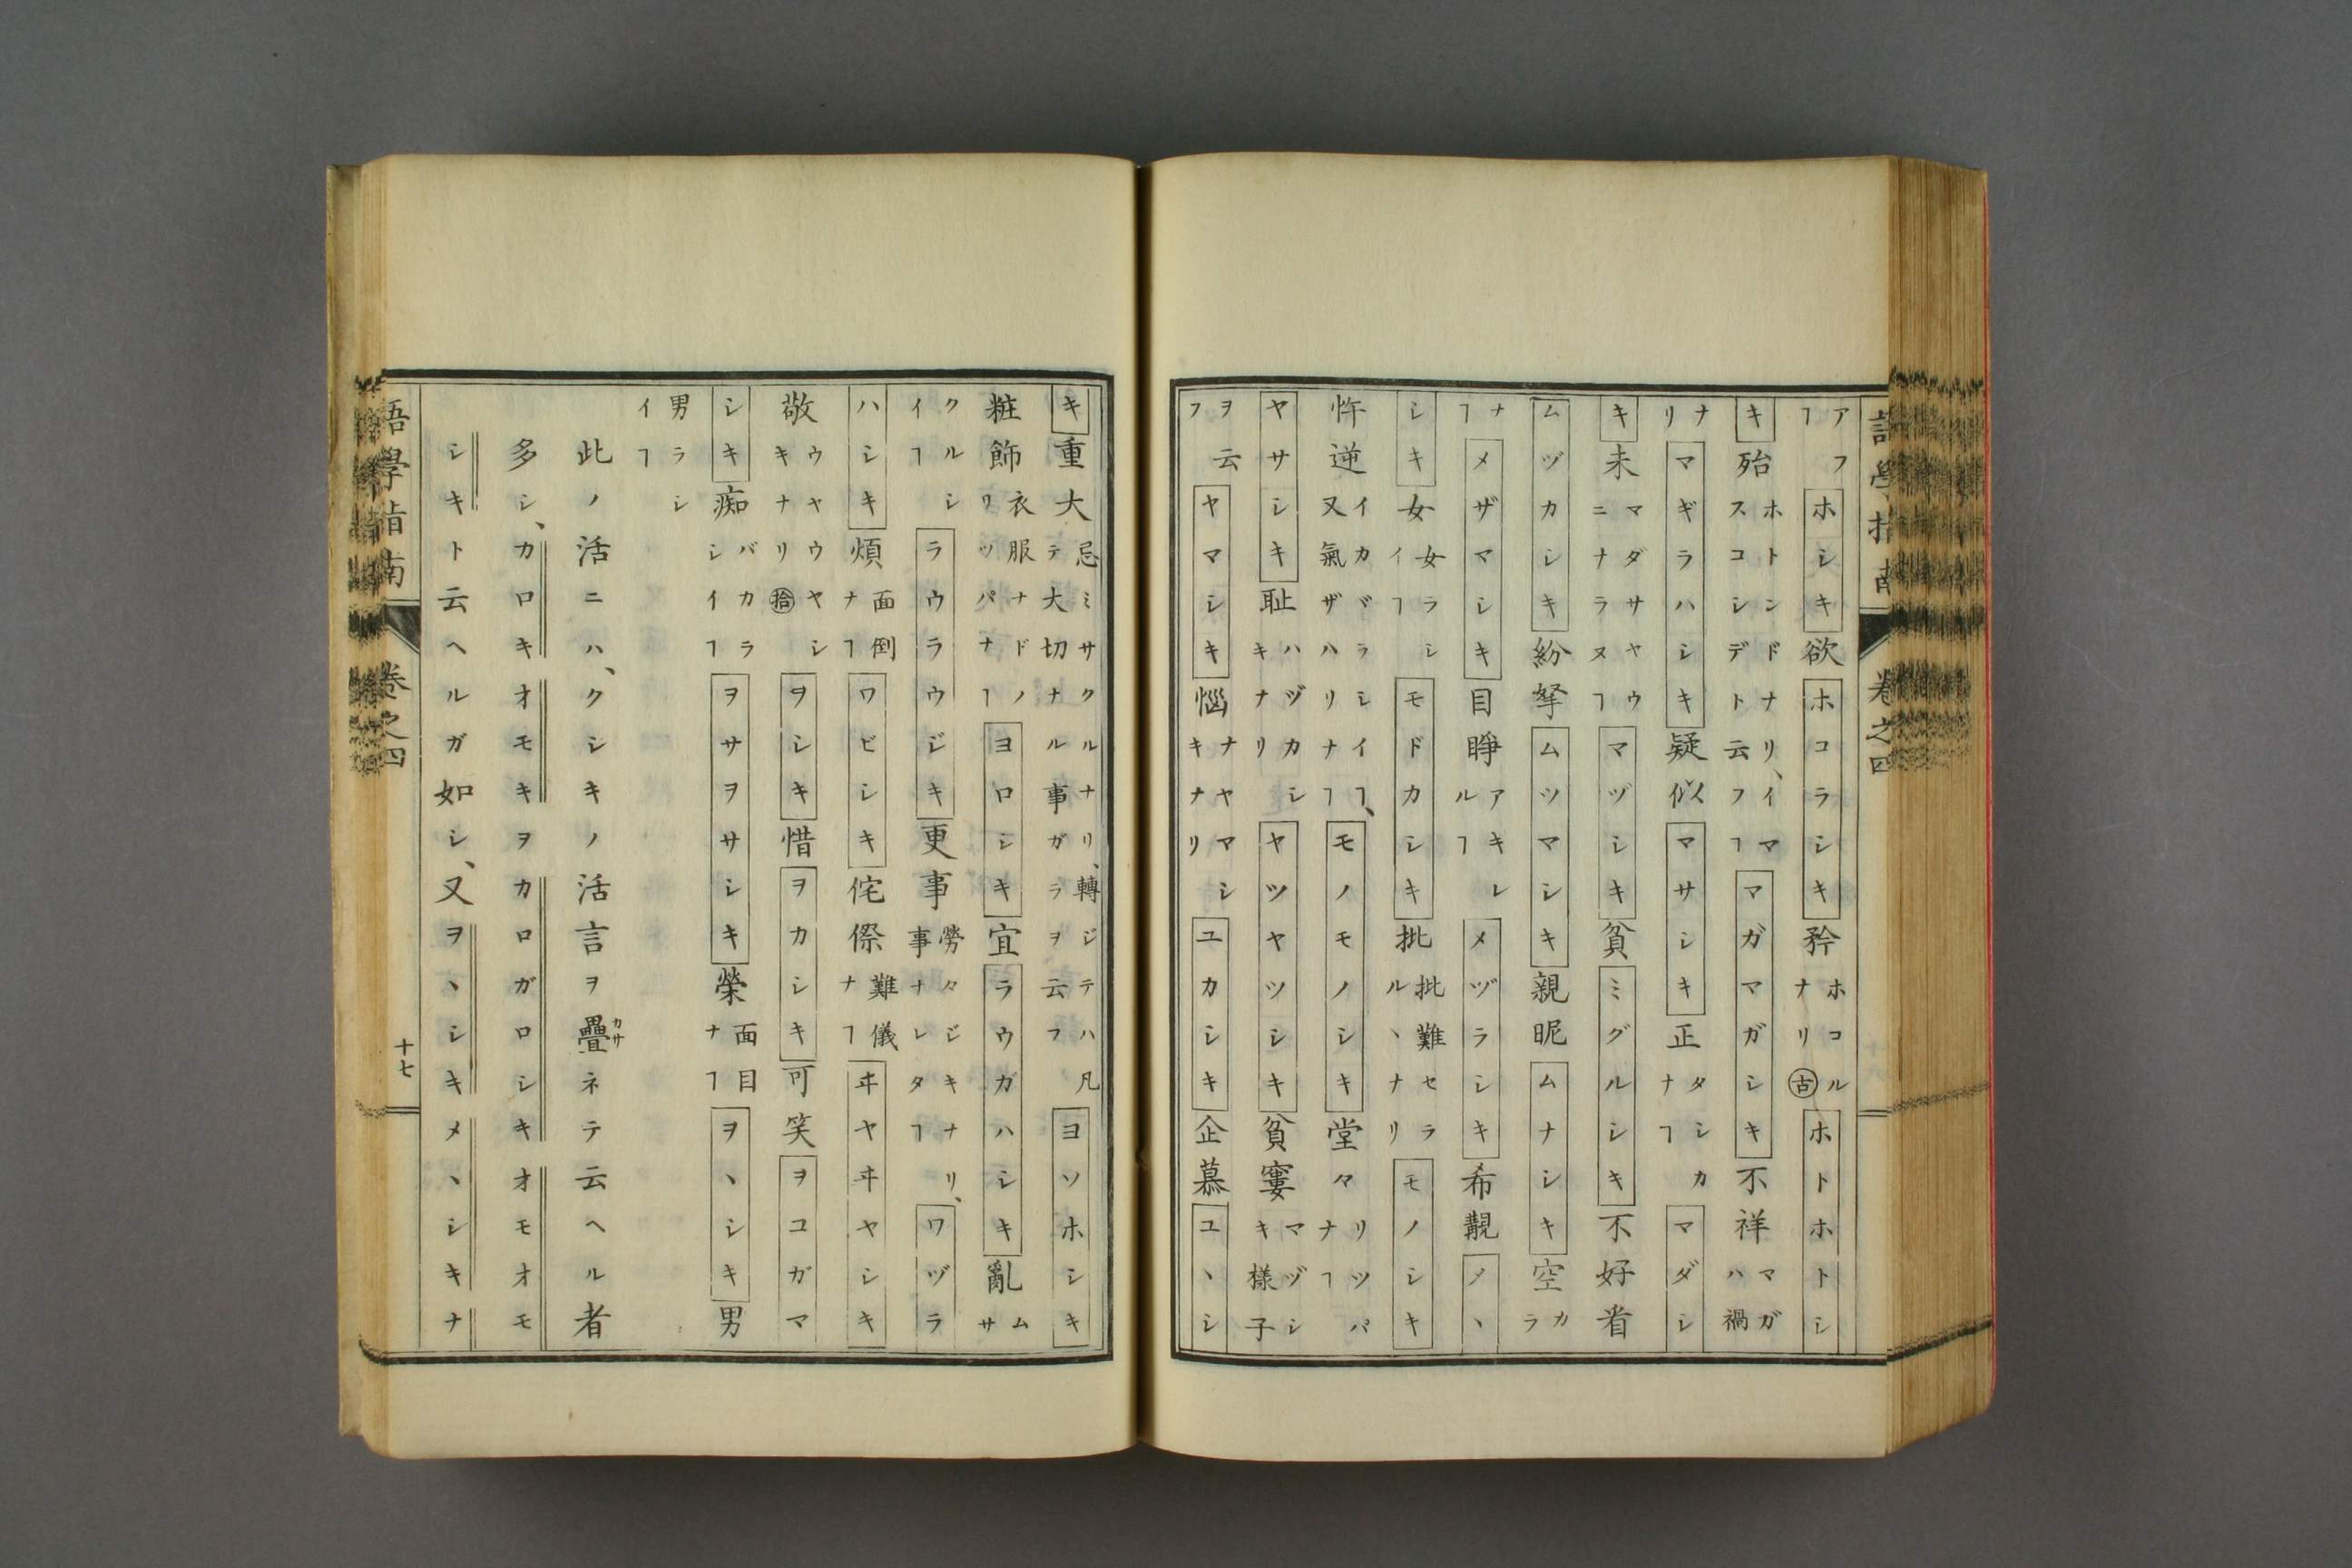 語學指南 卷之四
アフヿホシキ欲ホコラシキ矜ホコルナリ古ホトホトシ
キ殆ホトンドナリ、イマスコシデト云フヿマガマガシキ不祥マガハ禍
ナリマギラハシキ疑似マサシキ正タシカナヿマダシ
キ未マダサヤウニナラヌヿマヅシキ貧ミグルシキ不好看
ムヅカシキ紛拏ムツマシキ親昵ムナシキ空カラ
ナヿメザマシキ目睜アキレルヿメヅラシキ希覯メヽ
シキ女女ラシイヿモドカシキ批批難セラルヽナリモノシキ
忤逆イカヾラシイヿ、又氣ザハリナヿモノモノシキ堂々リツパナヿ
ヤサシキ耻ハヅカシキナリヤツヤツシキ貧窶マヅシキ様子
ヲ云フヤマシキ惱ナヤマシキナリユカシキ企慕ユヽシ
キ重大忌ミサクルナリ、轉ジテハ凡テ大切ナル事ガラヲ云フヨソホシキ
粧飾衣服ナドノリツパナヿヨロシキ宜ラウガハシキ亂ムサ
クルシイヿラウラウジキ更事勞々ジキナリ、事ナレタヿワヅラ
ハシキ煩面倒ナヿワビシキ侘傺難儀ナヿヰヤヰヤシキ
敬ウヤウヤシキナリ拾ヲシキ惜ヲカシキ可笑ヲコガマ
シキ痴バカラシイヿヲサヲサシキ榮面目ナヿヲヽシキ男
男ラシイヿ
此ノ活ニハ、クシキノ活言ヲ疊カサネテ云ヘル者
多シ、カロキオモキヲカロガロシキオモオモ
シキト云ヘルガ如シ、又ヲヽシキメヽシキナ
語學指南 卷之四 十七